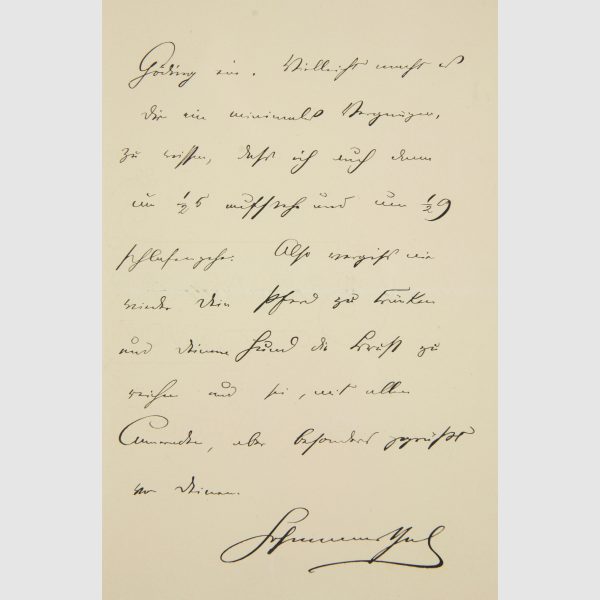 Göding ein. Vielleicht macht es
Dir ein minimales Vergnügen,
zu wissen, dass ich auch dann
um ½5 aufstehe und um ½9
schlafengehe. Also vergiss nie
wieder Dein Pferd zu tränken
und Deinem Hund die Brust zu
reichen und sei, mit allen
Cameraden, aber besonders gegrüßt
von Deinem
Hofmannsthal